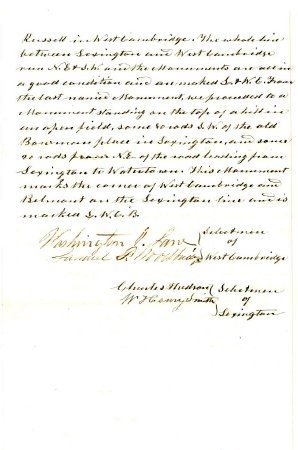 Russell in West Cambridge. The whole line
between Lexington and West Cambridge
run N.E & S.W. and the Monuments are all in
a good condition and are marked L & W.C. From
the last named Monument, we proceeded to a
Monument standing on the top of a hill in
an open field, some rods S.W. of the old
Bowman place in Lexington, and some
20 rods N.E. of the road leading from
Lexington to Watertown. This Monument
marks the corner of West Cambridge and
Belmont on the Lexington line and is
marked L.W.C.B.
Washington J. Lane
Selectmen
of
West Cambridge
Charles Hudson
W. Henry Smith
Selectmen
of
Lexington